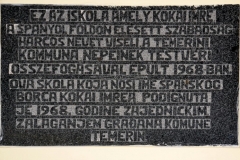 EZ AZ ISKOLA AMELY KOKAI IMRE
A SPANYOL FÖLDÖN ELESETT SZABADSÁG
HARCOS NEVÉT VISELI A TEMERINI
KOMMUNA NÉPEINEK TESTVÉRI
ÖSSZEFOGÁSÁVAL ÉPÜLT 1968. BAN.
OVA ŠKOLA KOJA NOSI IME ŠPANSKOG
BORCA KOKAI IMREA PODIGNUTA
JE 1968. GODINE ZAJEDNIČKIM
ZALAGANJEM GRAĐANA KOMUNE
TEMERIN